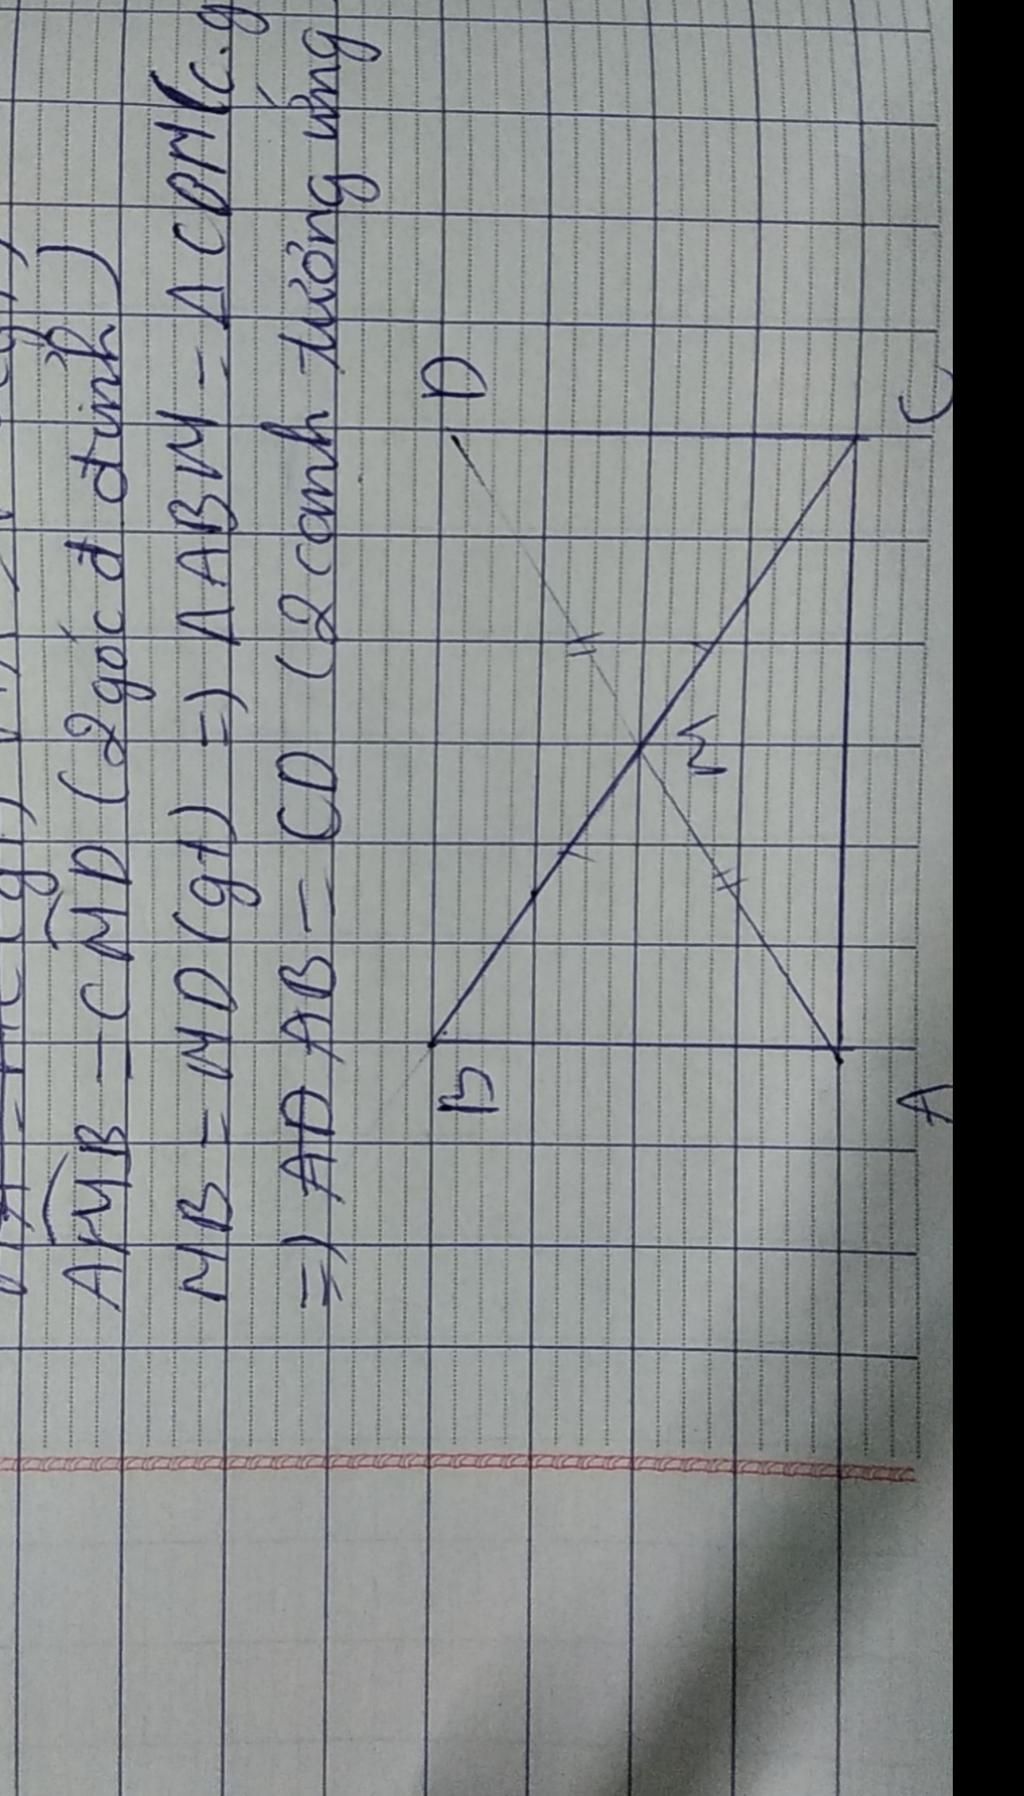 AMB = CMD (2 góc đ đỉnh)
MB = MD (gt) => ΔABM = ΔCDM (c.g
=> AB = CD (2 cạnh tương ứng
B
D
M
A
C